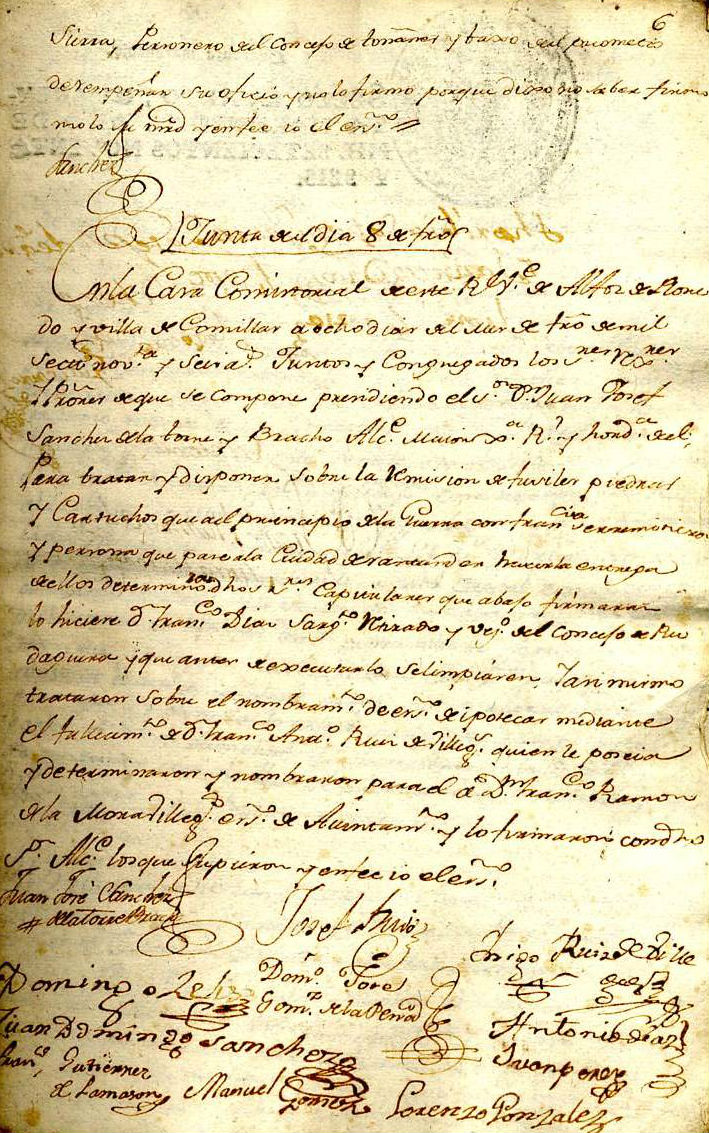 6
Sierra, Personero del Concejo de tomanes y baxo del prometio
desempeñar su oficio y no lo firmo porque dixo no saber firmo
molo su mrd y en fee io el ess.no
Sanchez
Junta del dia 8 de frô
En la Casa Consistorial de este Rl V.e de Alfoz de Llore
do y villa de Comillas a ocho dias del mes de frô de mil
setec.s nov.ta y seis a.s Juntos y Congregados los s.res
de que se compone presidiendo el s.or D.n Juan Josef
Sanchez de la torre y Bracho Alc.e Maior p.r R.l y hord.a de el,
Para tratar y disponer sobre la remision de fusiles piedras
y Cartuchos que al principio de la Guerra con francia se remitieron
y persona que pase a la Ciudad de santander hacer la entrega
de ellos determinaron dhos s.res Capitulares que abajo firmaran
lo hiciere d.n fran.co Diaz Sarg.to Retirado y vez.o del Concejo de Ru
daguera y que antes de executarlo se limpiaren, Y asi mismo
trataron sobre el nombram.to de ess.no de ipotecas mediante
el fallecim.to de d.n fran.co Ant.o Ruiz de Villeg.s quien le poseia
y determinaron y nombraron para el a D.n fran.co Ramon
de la Mora Villeg.s ess.no de Aiuntam.to y lo firmaron con dho
S.or Alc.e los que supieron y en fee io el ess.no
Juan José Sanchez
de la Torre Bracho
Josef Ruiz
Iñigo Ruiz de Ville
gas
Domingo
Dom.o José
Gom.z de la
Antonio diaz
Juan Domingo Sanchez
Juan perez
fran.co Gutierrez
de Lamason
Manuel Gomez
Lorenzo Gonzalez